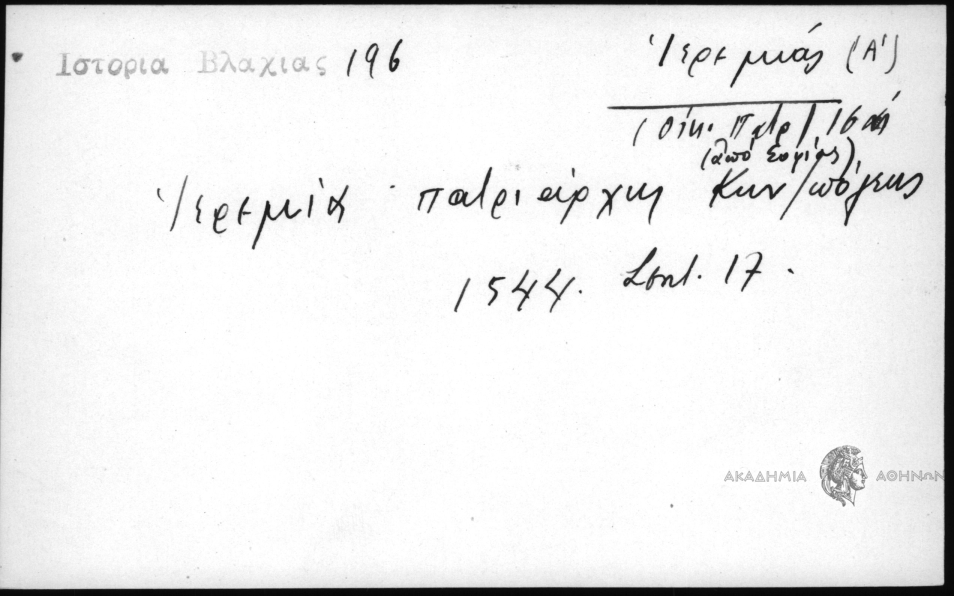 Ιστορια Βλαχιας 196
Ἰερεμιάς (Α')
(Οἰκ. Πατρ) 16
(ἀπό Σοφίας)
Ἰερεμία πατριάρχης Κων/πόλεως
1544. Σεπτ. 17.
ΑΚΑΔΗΜΙΑ ΑΘΗΝΩΝ